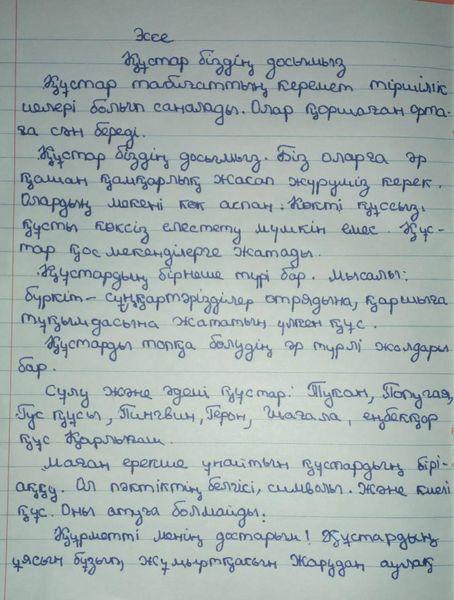 Эссе
Құстар біздің досымыз
Құстар табиғаттың керемет тіршілік
иелері болып саналады. Олар қоршаған орта-
ға сән береді.
Құстар біздің досымыз. Біз оларға әр
қашан қамқарлық жасап жүруміз керек.
Олардың мекені көк аспан. Көкті құссыз,
құсты көксіз елестету мүмкін емес. Құс-
тар қос мекенділерге жатады.
Құстардың бірнеше түрі бар. Мысалы:
бүркіт - сұңқартәрізділер отрядына, қаршыға
тұқымдасына жататын үлкен құс.
Құстарды топқа бөлудің әр түрлі жолдары
бар.
Сұлу және әдемі құстар: Тукан, Попугая,
Гус құсы, Пингвин, Герон, Шағала, еңбекқор
құс Қарлығаш.
Маған ерекше ұнайтын құстардың бірі-
аққу. Ол пәктіктің белгісі, символы. Және киелі
құс. Оны атуға болмайды.
Құрметті менің достарым! Құстардың
ұясын бұзып, жұмыртқасын жарудан аулақ